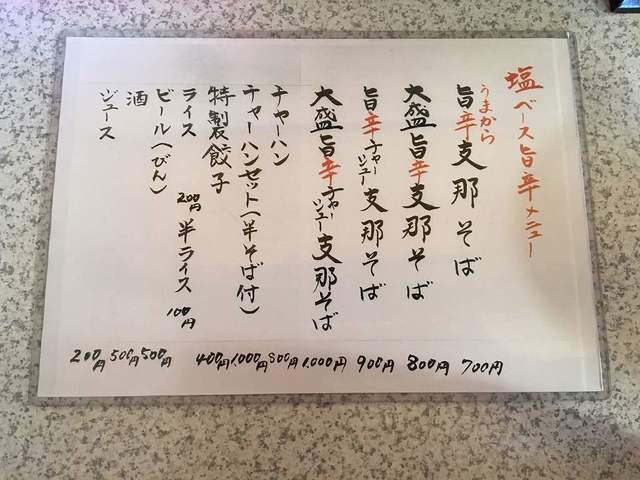 塩ベース旨辛メニュー
うまから
旨辛支那そば 700円
大盛旨辛支那そば 800円
旨辛チャーシュー支那そば 900円
大盛旨辛チャーシュー支那そば 1,000円
チャーハン 800円
チャーハンセット(半そば付) 1,000円
特製餃子 400円
ライス 200円 半ライス 100円
ビール(びん) 500円
酒 500円
ジュース 200円